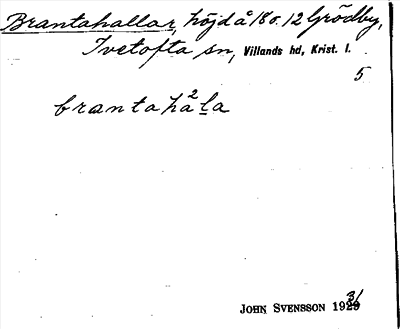 Brantahallar, höjd å 18 o. 12 Grödby,
Ivetofta sn, Villands hd, Krist. l.
5
brantaha²l̲a
JOHN SVENSSON 1931